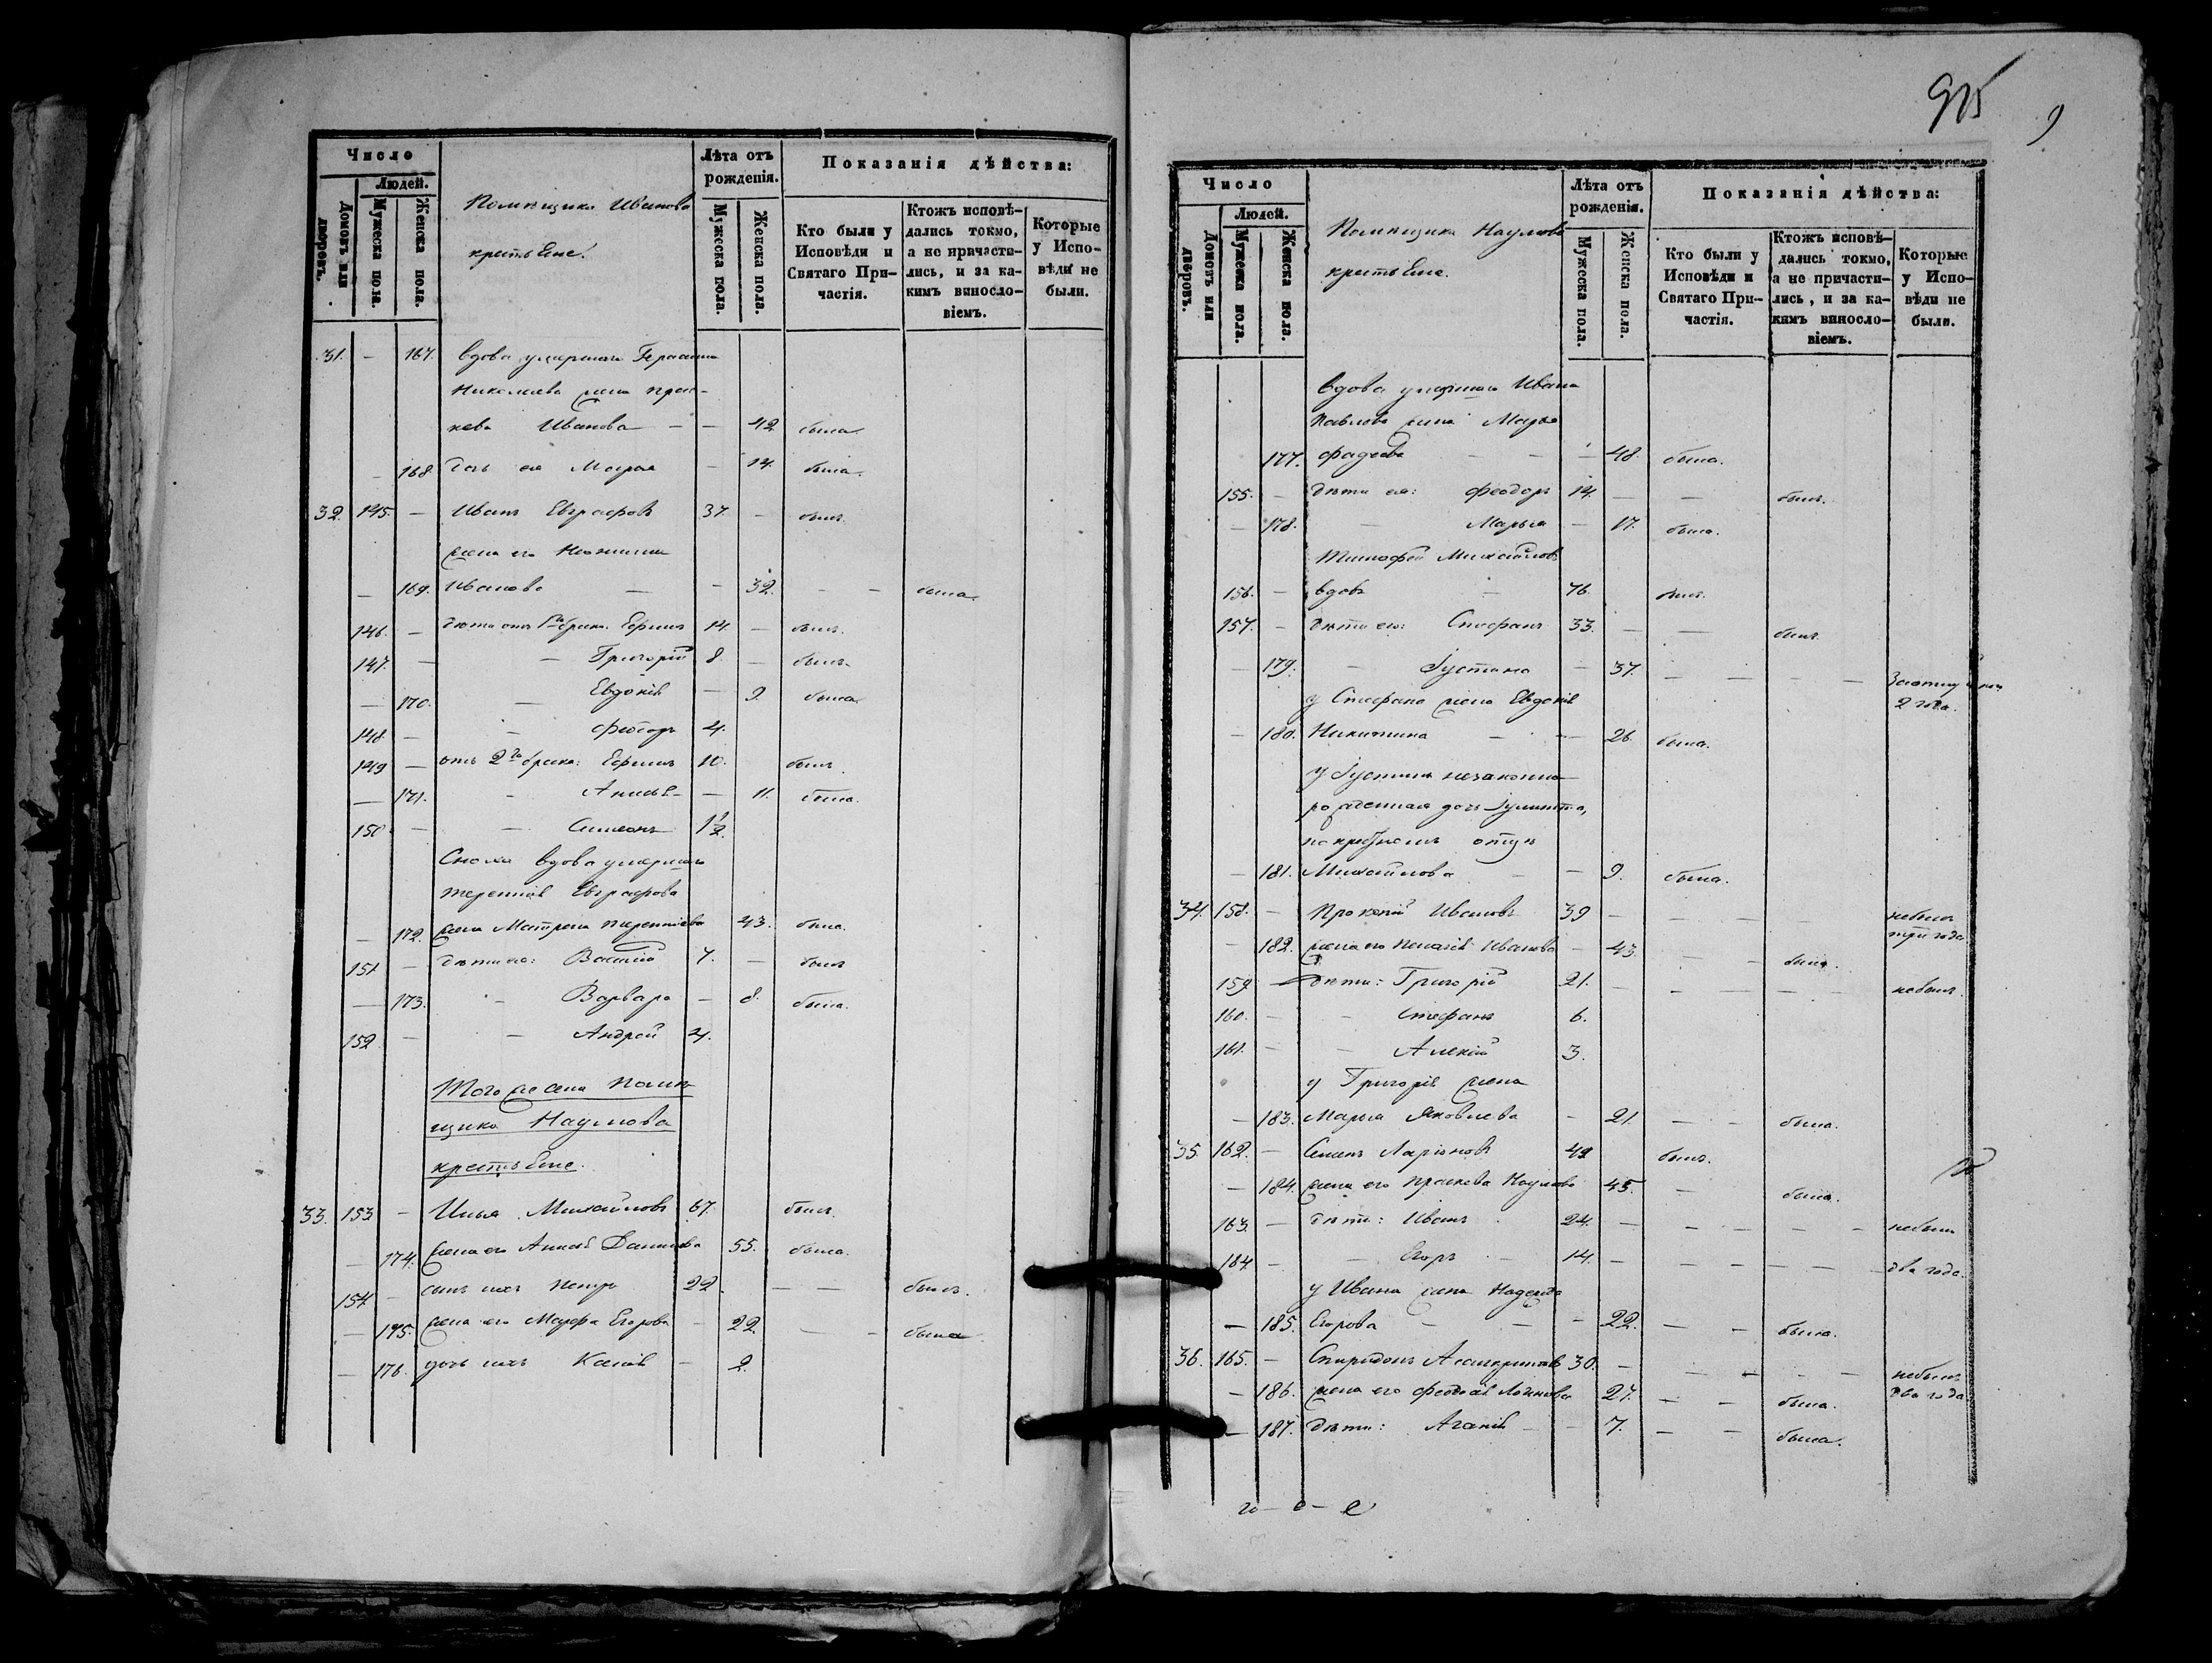 Число
Людей.
Домовъ или дворовъ.
Мужеска пола.
Женска пола.
Помѣщика Иванова
крестьяне.
Лѣта отъ рожденія.
Мужеска пола.
Женска пола.
Показанія дѣйства:
Кто были у Исповѣди и Святаго Причастія.
Ктожъ исповѣдались токмо, а не причастились, и за какимъ винословіемъ.
Которые у Исповѣди не были.
31. — 167. вдова умершаго Герасима
Николаева жена Прас-
кева Иванова — — 42 была
— 168. дочь ея Марья — 14. была.
32. 145. — Иванъ Евграфовъ 37. — былъ.
жена его
— 169. Иванова — — 32. — — была
146. — дѣти отъ 1го брака: Ефимъ 14. — былъ.
147. — — Григорій 8. — былъ.
— 170. — Евдокія — 9. была
148. — — Феодоръ 4.
149 — отъ 2го брака: Ефимъ 10. былъ.
— 171. — — 11. была.
150 — — Симеонъ 1½.
Сноха вдова умершаго
Терентія Евграфова
— 172. жена Матрена Терентіева 43. была.
151 — дѣти ея: Василій 7. — былъ
— 173. — Варвара — 8. была.
152 — — Андрей 4.
Того же села Помѣ-
щика Наумова
крестьяне.
33. 153 — Илья Михайловъ 67. былъ.
— 174. жена его Анна Данилова 55. была.
154 — сынъ ихъ Петръ 22. — — былъ.
— 175. жена его Марфа Егорова — 22. — — была
— 176. дочь ихъ — 2
915
9
Число
Людей.
Домовъ или дворовъ.
Мужеска пола.
Женска пола.
Помѣщика Наумова
крестьяне.
Лѣта отъ рожденія.
Мужеска пола.
Женска пола.
Показанія дѣйства:
Кто были у Исповѣди и Святаго Причастія.
Ктожъ исповѣдались токмо, а не причастились, и за какимъ винословіемъ.
Которые у Исповѣди не были.
вдова умершаго Ивана
Павлова жена Марья
177. Фадеева — — — 48. была.
155. — дѣти ея: Феодоръ 14. — — былъ.
— 178. — Марья — 17. была.
Тимофей Михайловъ
156. — вдовъ — 76. былъ.
157. — дѣти его: Стефанъ 33. — — былъ.
— 179. — Іустина — 37. — — — —
2 года.
у Стефана жена Евдокія
— 180. Никитина — — 26. была.
у Іустины незаконно-
рожденная дочь Іулитта,
по крестномъ отцѣ
— 181. Михайлова — — 9. была.
34. 158. — Прокопій Ивановъ 39 — — — небылъ
три года
— 182. жена его Пелагія Иванова — 43. — — была.
159 — дѣти: Григорій 21. — — — — небылъ.
160. — — Стефанъ 6.
161. — — Алексій 3.
у Григорія жена
— 183. Марья Яковлева — 21. — — была.
35. 162. — Семенъ Ларіоновъ 49 былъ.
— 184. жена его Праскева Наумова 45. — была.
163. — дѣти: Иванъ 24. — — — — небыли
164 — — Егоръ — 14. — — — — два года.
у Ивана жена Надежда
— 185. Егорова — — — 22. — — была.
36. 165. — Спиридонъ 30. — — — — небылъ
два года
— 186. жена его Логинова 27. — — была.
— 187. дѣти: Агапія — — 7. — — была.